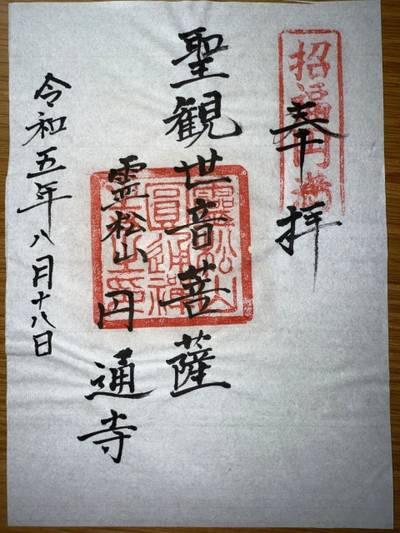 奉拝
聖観世音菩薩
霊松山円通寺
令和五年八月十八日